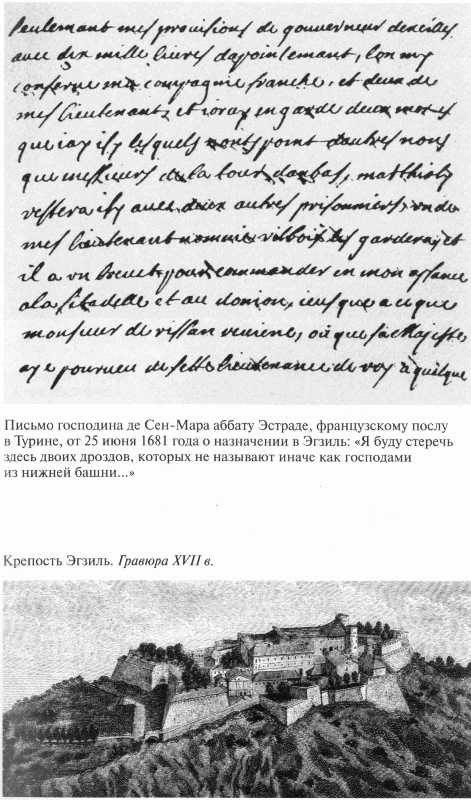 seulemant mes provisions de gouverneur dexilles
avec dix mille livres dapointemant, lon my
conserve ma compagnie franche, et deux de
mes lieutenants, et ioray en garde deux merles
que iay isy lesquels nonts point dautres noms
que messieurs de la tour danbas, matthioly
restera isy avec deux autres prisonniers, un de
mes lieutenant nommé vilbois les gardera, et
il a un brevet pour commander en mon assance
a la sitadelle et au donjon, jusque a ce que
monsieur de rissan vienne, où que sa Majeste
aye pourveu de sette lieutenance de roy a quelque
Письмо господина де Сен-Мара аббату Эстраде, французскому послу
в Турине, от 25 июня 1681 года о назначении в Эгзиль: «Я буду стеречь
здесь двоих дроздов, которых не называют иначе как господами
из нижней башни...»
Крепость Эгзиль. Гравюра XVII в.